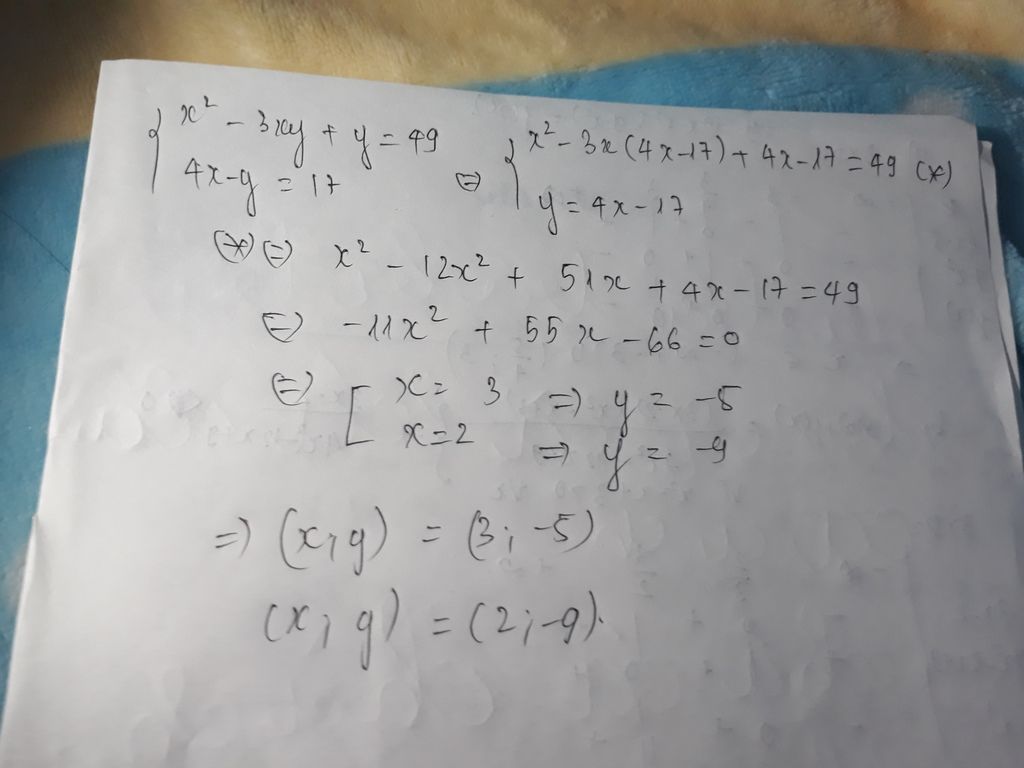 { x² - 3xy + y = 49
4x-y = 17
⇔ { x² - 3x(4x-17) + 4x-17 = 49 (*)
y = 4x - 17
(*) ⇔ x² - 12x² + 51x + 4x - 17 = 49
⇔ -11x² + 55x - 66 = 0
⇔ [ x = 3 => y = -5
x = 2 => y = -9
=> (x; y) = (3; -5)
(x; y) = (2; -9).